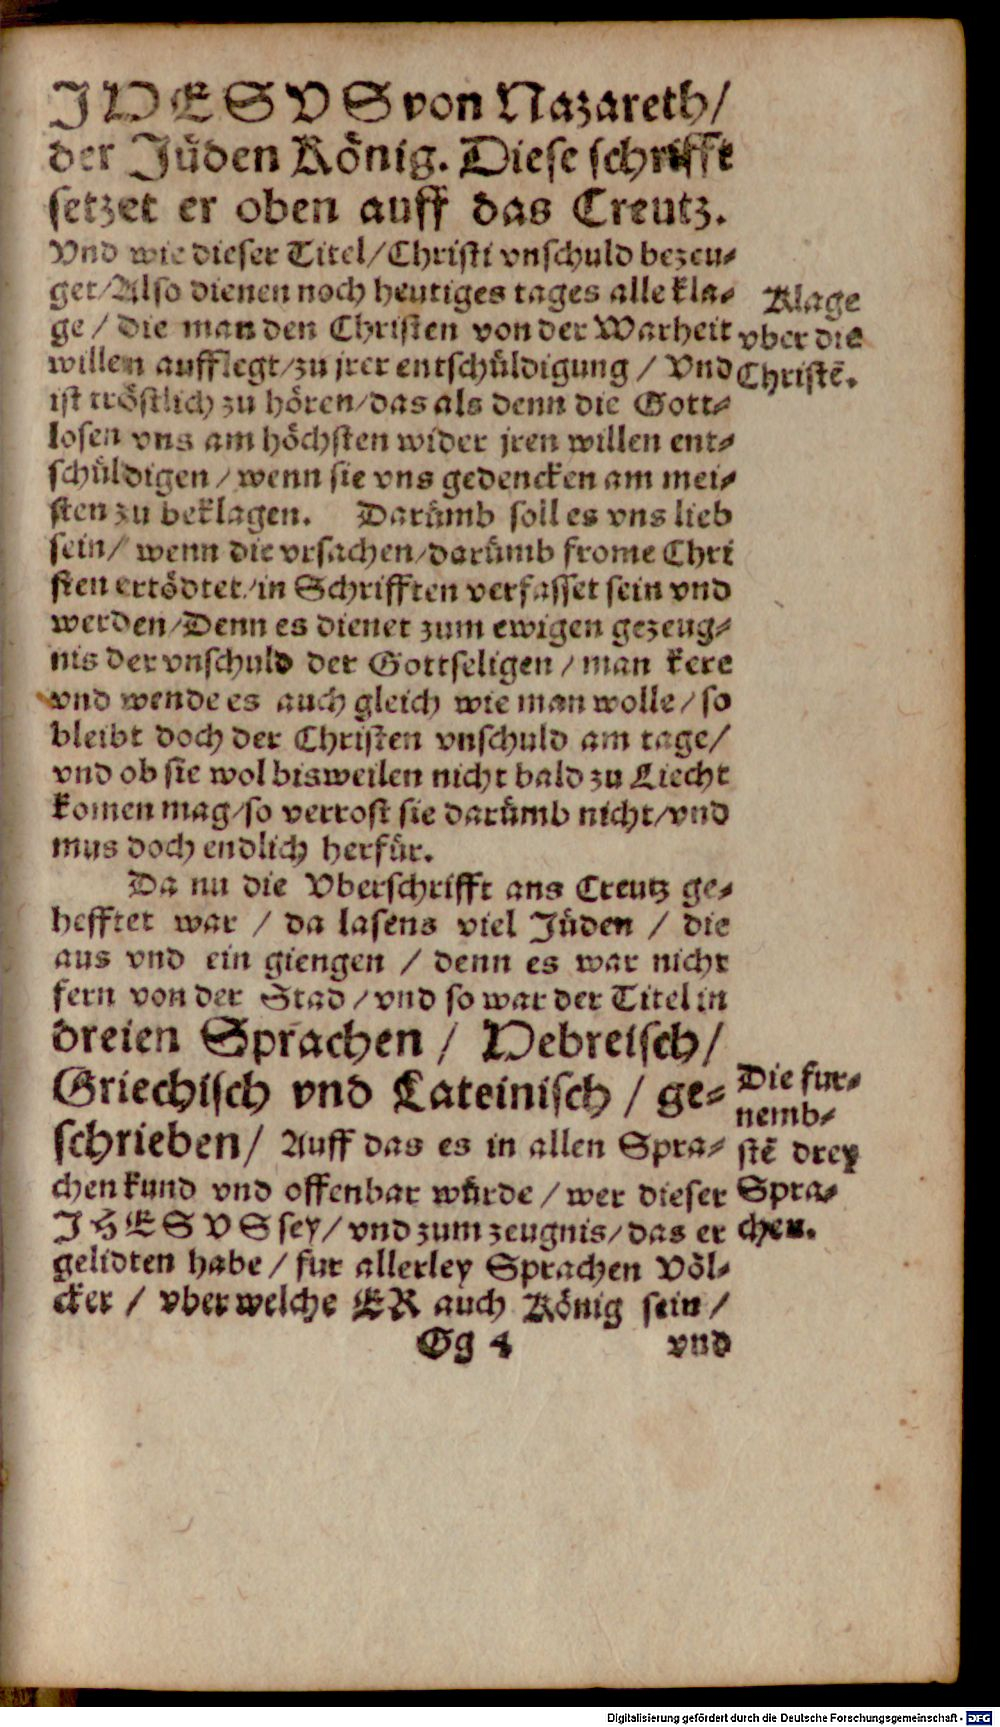 JHESVS von Nazareth/
der Jüden König. Diese schrifft
setzet er oben auff das Creutz.
Vnd wie dieser Titel/Christi vnschuld bezeu-
get/Also dienen noch heutiges tages alle kla-
ge/die man den Christen von der Warheit
willen aufflegt/zu jrer entschüldigung/Vnd
ist tröstlich zu hören/das als denn die Gott-
losen vns am höchsten wider jren willen ent-
schüldigen/wenn sie vns gedencken am mei-
sten zu beklagen. Darümb soll es vns lieb
sein/wenn die vrsachen/darümb frome Chri
sten ertödtet/in Schrifften verfasset sein vnd
werden/Denn es dienet zum ewigen gezeug-
nis der vnschuld der Gottseligen/man kere
vnd wende es auch gleich wie man wolle/so
bleibt doch der Christen vnschuld am tage/
vnd ob sie wol bisweilen nicht bald zu Liecht
komen mag/so verrost sie darümb nicht/vnd
mus doch endlich herfür.
Klage
vber die
Christē.
Da nu die Vberschrifft ans Creutz ge-
hefftet war/da lasens viel Jüden/die
aus vnd ein giengen/denn es war nicht
fern von der Stad/vnd so war der Titel in
dreien Sprachen/Hebreisch/
Griechisch vnd Lateinisch/ge-
schrieben/Auff das es in allen Spra-
chen kund vnd offenbar würde/wer dieser
JHESVS sey/vnd zum zeugnis/das er
gelidten habe/fur allerley Sprachen Völ-
cker/vber welche ER auch König sein/
Die fur-
nemb-
stē drey
Spra-
chen.
Gg 4 vnd
Digitalisierung gefördert durch die Deutsche Forschungsgemeinschaft - DFG